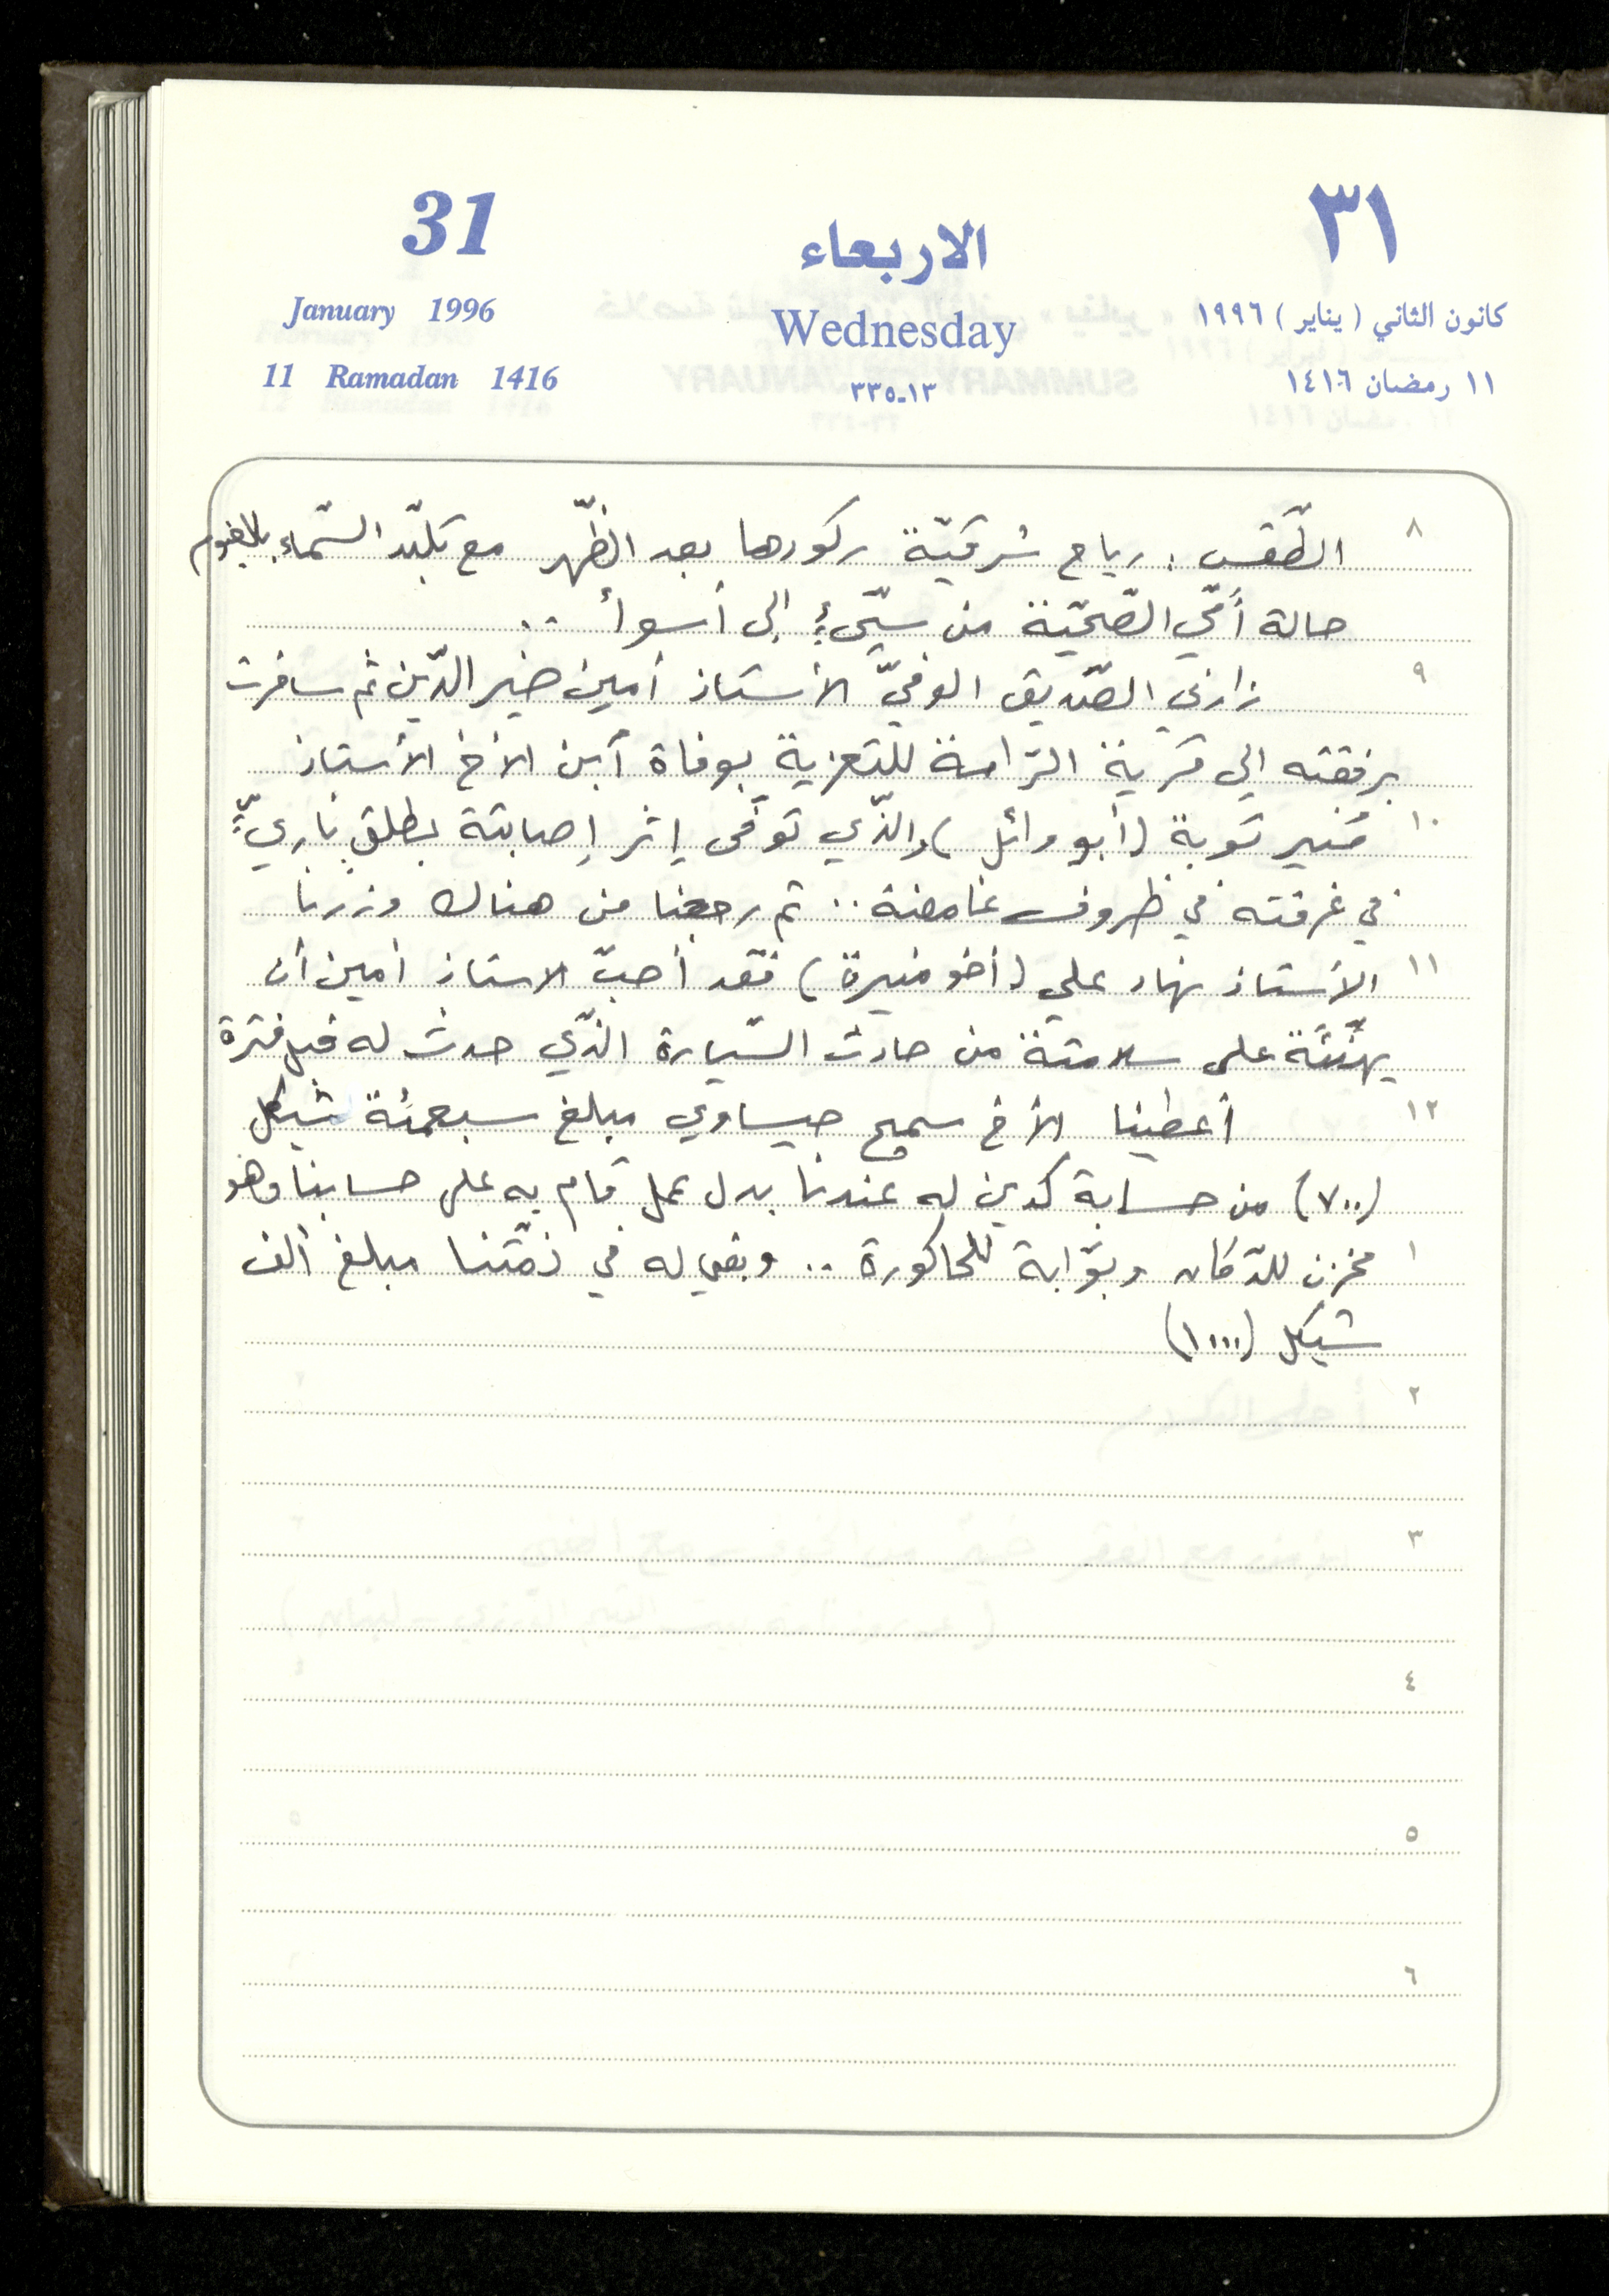 31
الاربعاء
٣١
January 1996
Wednesday
كانون الثاني ( يناير ) ١٩٩٦
11 Ramadan 1416
١٣-٣٣٥
١١ رمضان ١٤١٦
٨
الطّقس : رياح شرقيّة ركودها بعد الظّهر مع تلبّد السّماء بالغيوم
حالة أمّي الصّحيّة من سيّئٍ إلى أسوأ ..
٩
زارني الصّديق الوفيّ الأستاذ أمين خير الدّين ثم سافرت
برفقته الى قرية الرّامة للتعزية بوفاة أبن الأخ الأستاذ
١٠
منير توبة (أبو وائل) والذّي توفّى إثر إصابتة بطلقٍ ناريٍّ
في غرفته في ظروف غامضة .. ثم رجعنا من هناك وزرنا
١١
الأستاذ نهاد علي (أخو منيرة) فقد أحبّ الاستاذ أمين أن
يهنّئة على سلامتة من حادث السّيارة الذّي حدث له قبل فترة
١٢
أعطينا الأخ سميح عيساوي مبلغ سبعمئة شيكل
(٧٠٠) من حسابة كدين له عندنا بدل عمل قام به على حسابنا وهو
١
مخزن للدّكان وبوّابة للحاكورة .. وبقي له في ذمّتنا مبلغ ألف
شيكل (١٠٠٠)
٢
٣
٤
٥
٦